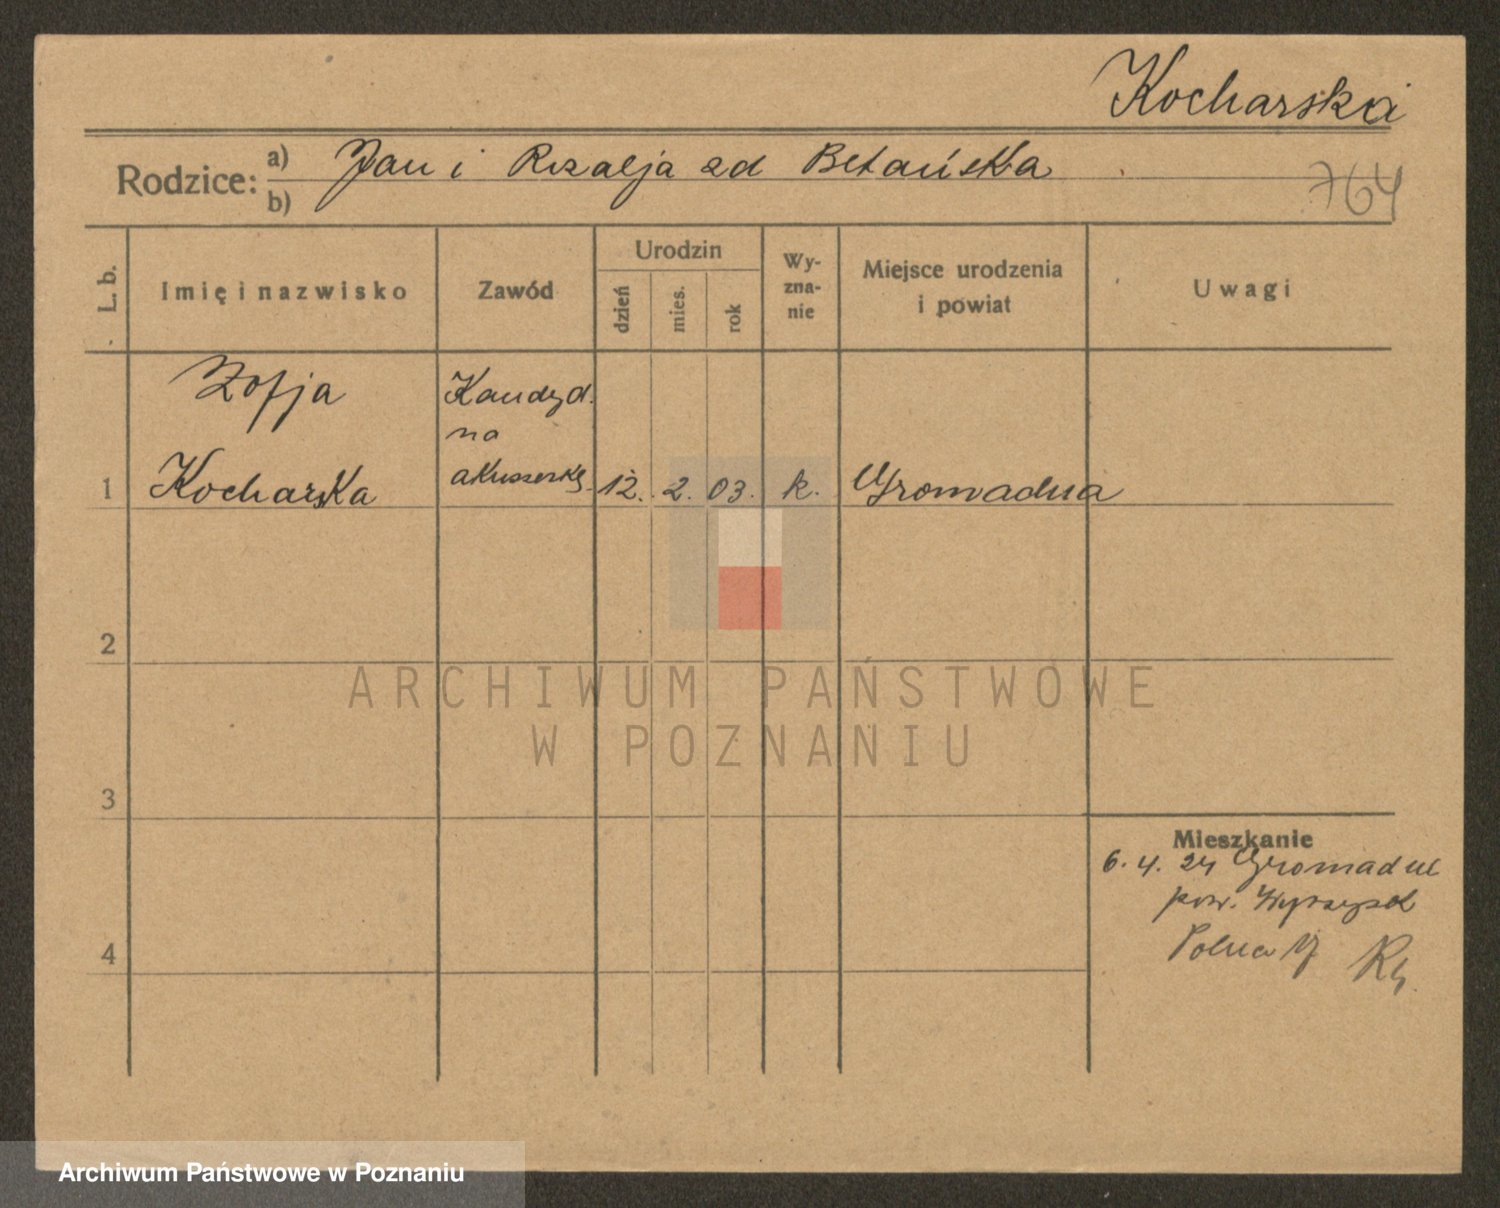 Kocharska
Rodzice: a) Jan i Rozalja zd Betańska
b)
764
L. b.
Imię i nazwisko
Zawód
Urodzin
dzień
mies.
rok
Wy-
zna-
nie
Miejsce urodzenia
i powiat
Uwagi
Zofja
Kandyd.
na
1 Kocharska akuszerkę 12. 2. 03. k. Gromadna
2
3
4
Mieszkanie
6. 4. 24 Gromadno
pow. Wyrzysk
Polna
ARCHIWUM PAŃSTWOWE
W POZNANIU
Archiwum Państwowe w Poznaniu